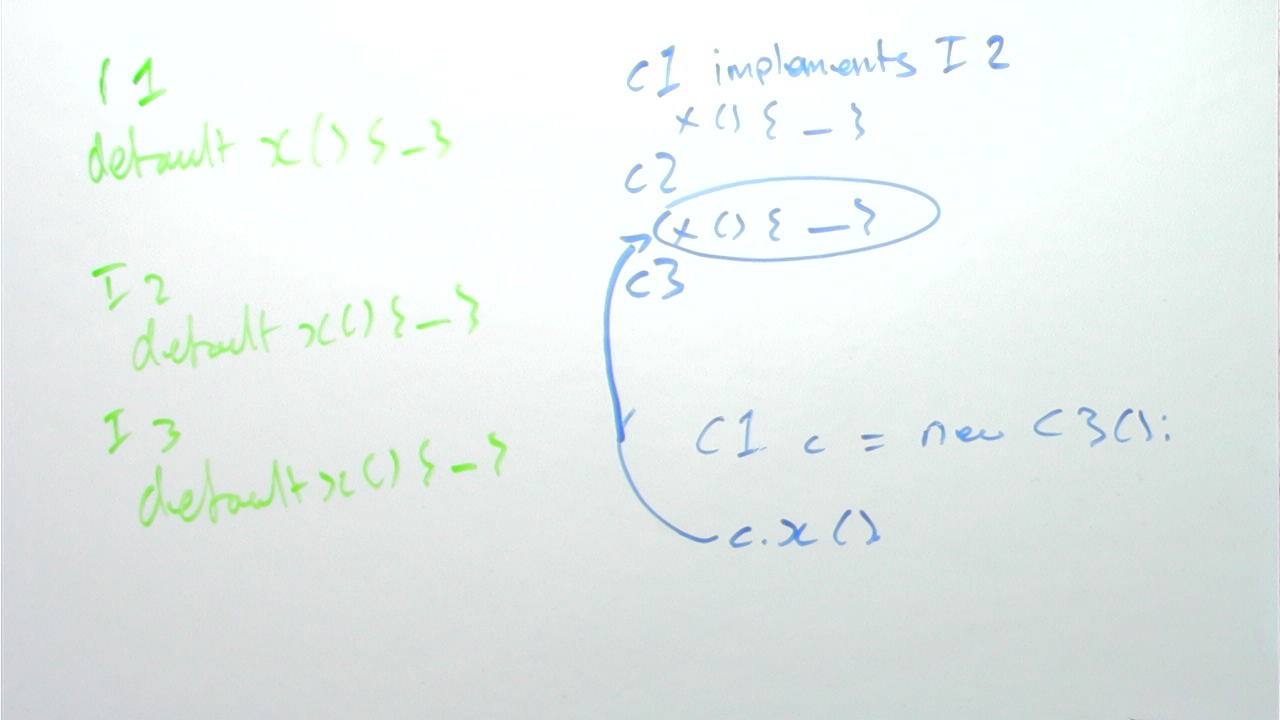 I 1
default x() { _ }
I 2
default x() { _ }
I 3
default x() { _ }
C1 implements I 2
x () { _ }
C2
x () { _ }
C3
C1 c = new C3();
c.x()